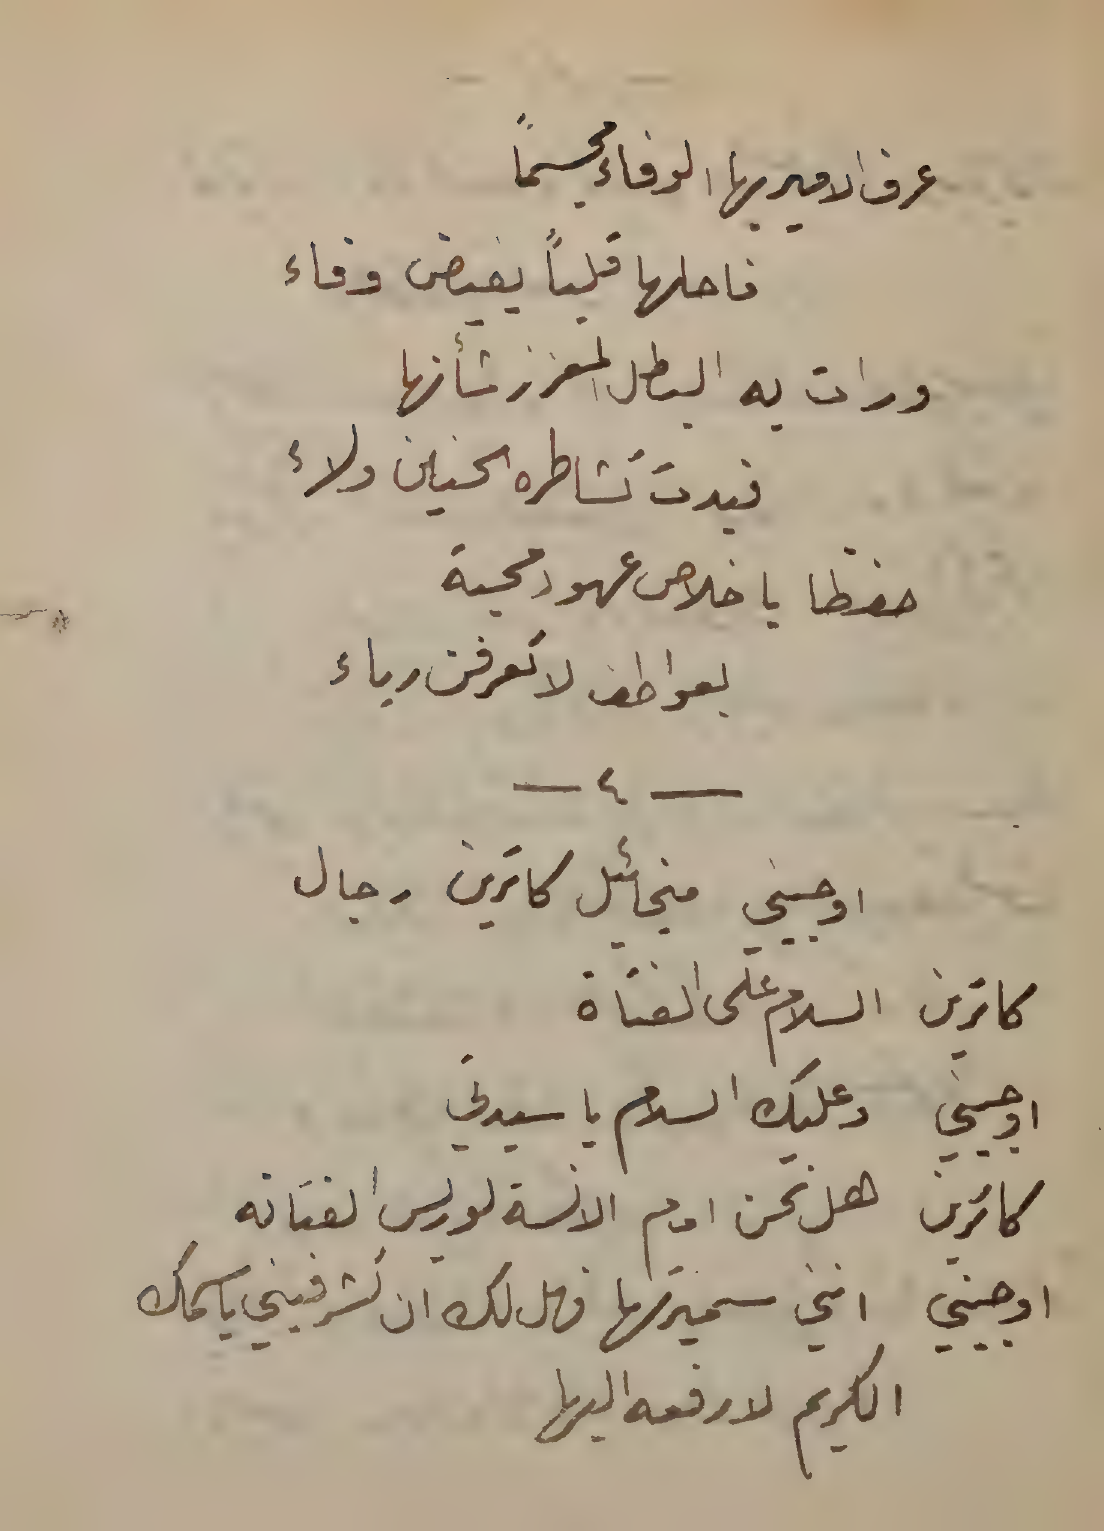 عرف الامير بها الوفاء مجسماً
فاحلها قلباً يفيض وفاء
ورات به البطل المعزز شأنها
فبدت تشاطره الحنين ولاء
حفظا باخلاص عهود محبة
بعواطف لا تعرفن رياء
— ٤ —
اوجيني ميخائيل كاترين رجال
كاترين السلام على الفتاة
اوجيني وعليك السلام يا سيدتي
كاترين هل نحن امام الانسة لويس الفتانه
اوجيني انني سميرتها فهل لك ان تشرفيني باسمك
الكريم لارفعه اليها